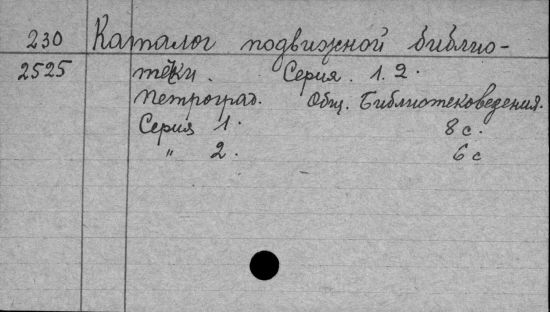 230 Каталог подвижной библио-
2525 теки. Серия. 1. 2.
Петроград. Общ. Библиотековедения.
Серия 1. 8 с.
" 2. 6 с